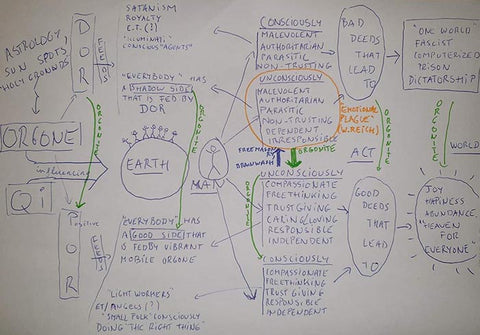 ASTROLOGY
SUN SPOTS
HOLY GROUNDS
DOR
FEEDS
SATANISM
ROYALTY
E.T. (?)
"ILLUMINATI"
CONSCIOUS "AGENTS"
"EVERYBODY" HAS
A SHADOW SIDE
THAT IS FED BY
DOR
ORGONE
influencing
QI
Positive
POR
FEEDS
ORGONITE
EARTH
ORGONITE
MAN
"EVERYBODY" HAS
A GOOD SIDE THAT
IS FED BY VIBRANT
MOBILE ORGONE
"LIGHT WORKERS"
ET/ANGELS (?)
"SMALL FOLK" CONSCIOUSLY
DOING "THE RIGHT THING"
CONSCIOUSLY
MALEVOLENT
AUTHORITARIAN
PARASITIC
NON-TRUSTING
UNCONSCIOUSLY
MALEVOLENT
AUTHORITARIAN
PARASITIC
NON-TRUSTING
DEPENDENT
IRRESPONSIBLE
"EMOTIONAL
PLAGUE"
(W.REICH)
FREEMASONRY
BRAINWASH
ORGONITE
ORGONITE
UNCONSCIOUSLY
COMPASSIONATE
FREETHINKING
TRUSTGIVING
CARING&LOVING
RESPONSIBLE
INDEPENDENT
CONSCIOUSLY
COMPASSIONATE
FREETHINKING
TRUST GIVING
RESPONSIBLE
INDEPENDENT
BAD
DEEDS
THAT
LEAD
TO
ORGONITE
ACT
GOOD
DEEDS
THAT
LEAD
TO
"ONE WORLD"
FASCIST
COMPUTERIZED
PRISON
DICTATORSHIP
ORGONITE
WORLD
JOY
HAPINESS
ABUNDANCE
"HEAVEN
FOR
EVERYONE"